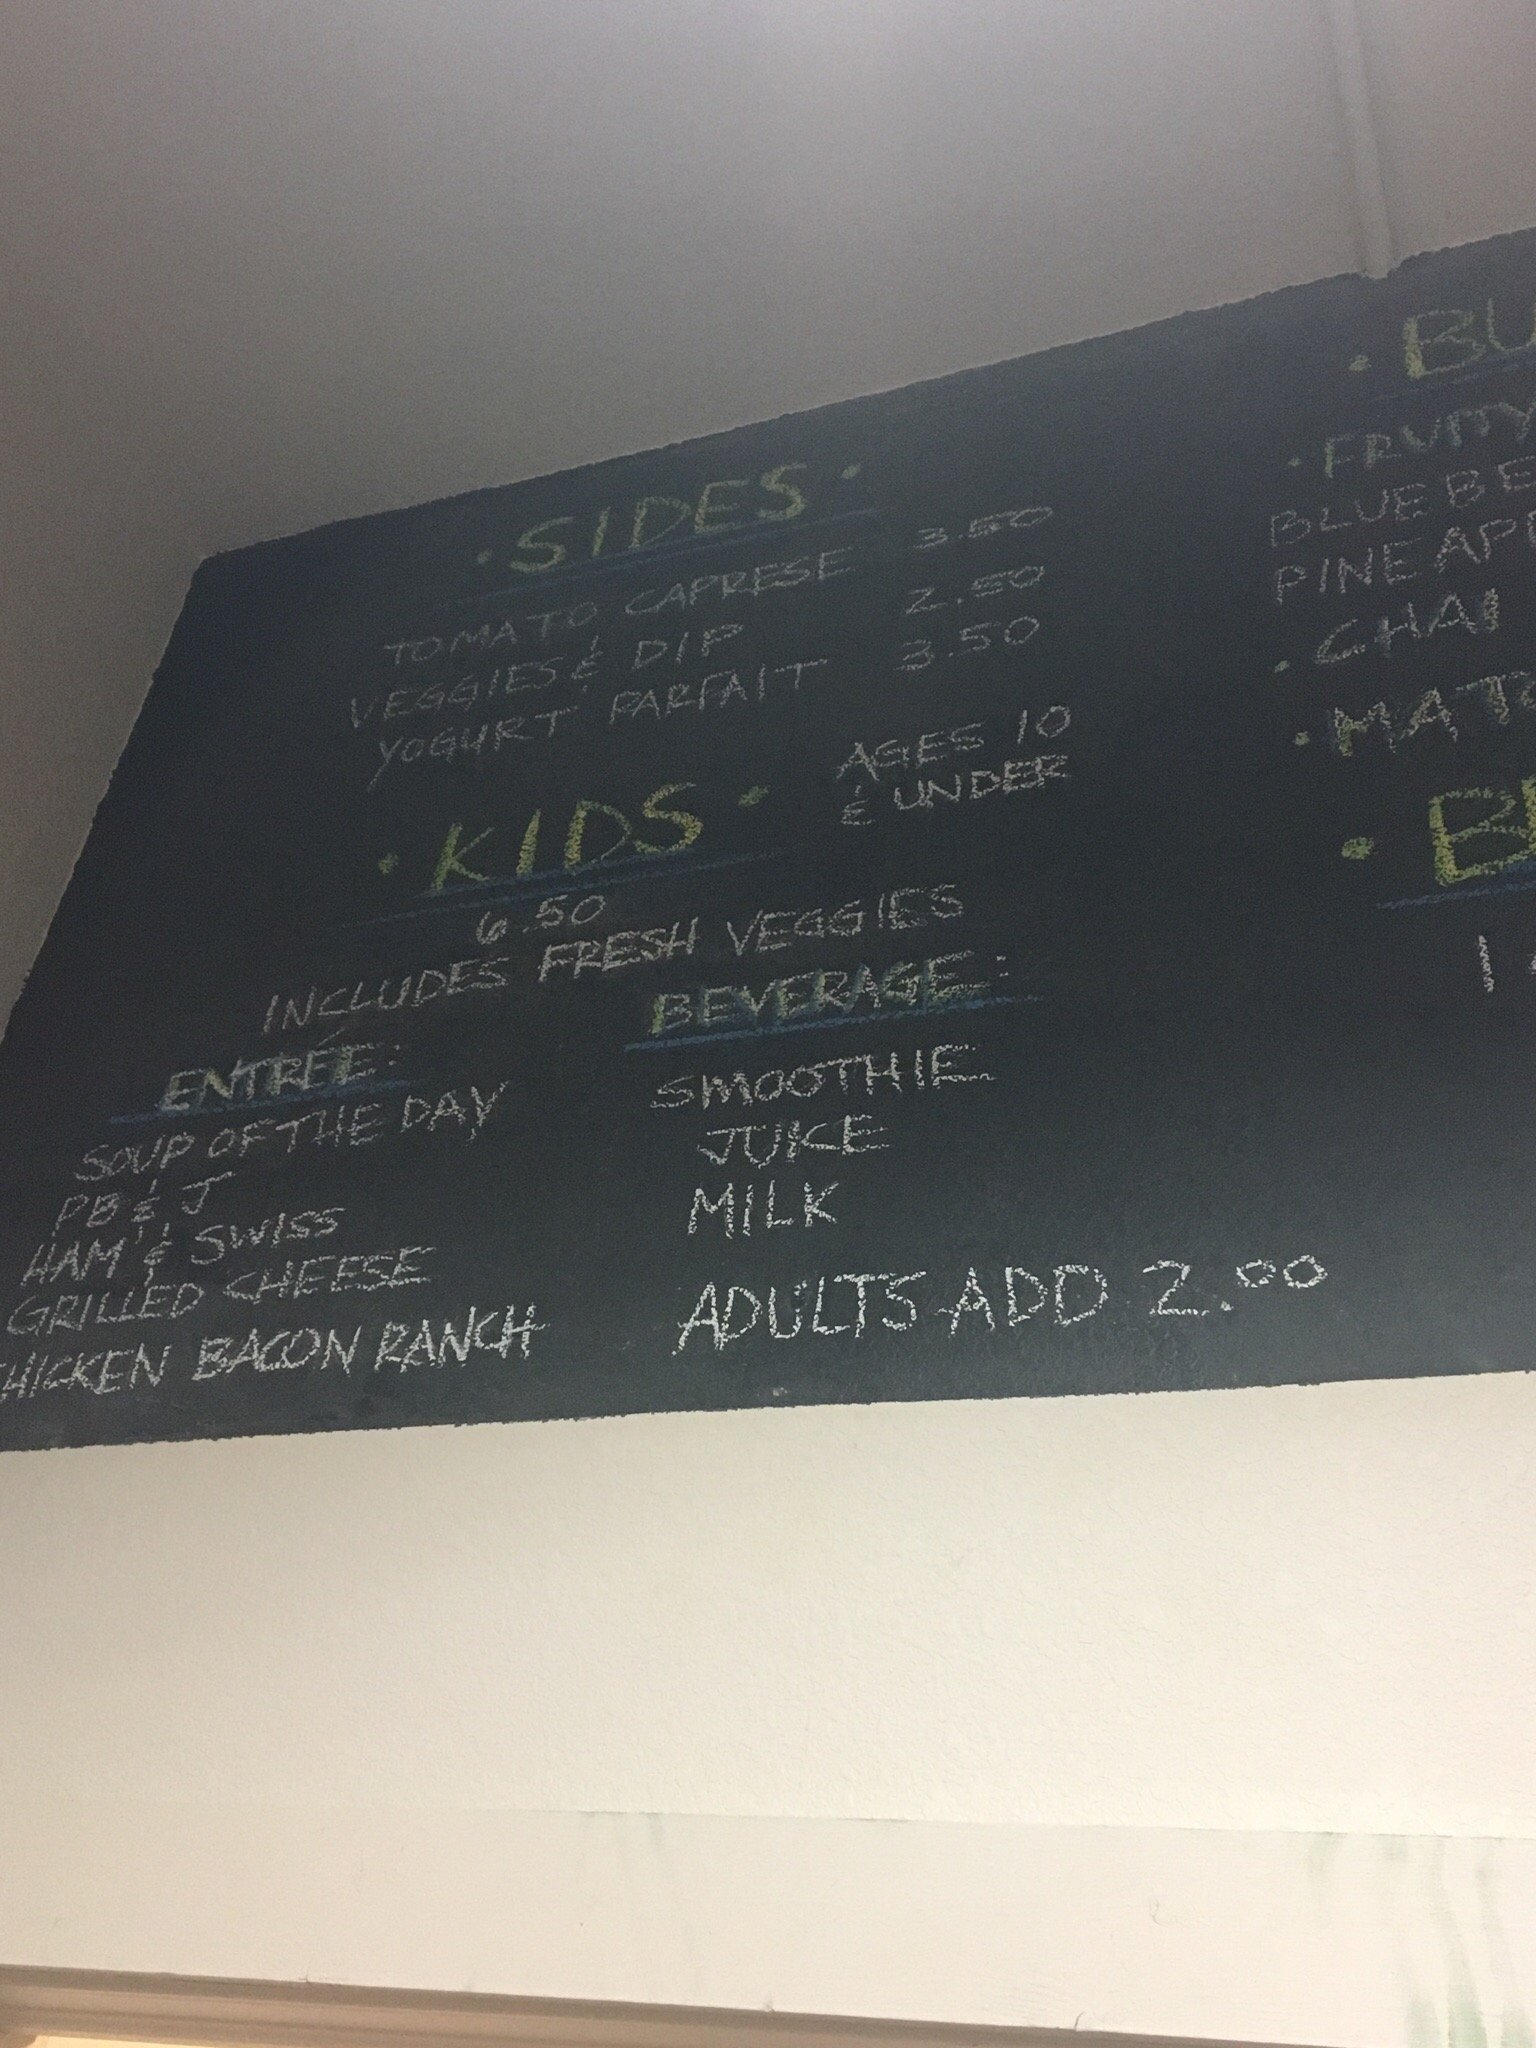 · SIDES ·
TOMATO CAPRESE 3.50
VEGGIES & DIP 2.50
YOGURT PARFAIT 3.50
· KIDS ·
AGES 10
& UNDER
6.50
INCLUDES FRESH VEGGIES
ENTRÉE:
SOUP OF THE DAY
PB & J
HAM & SWISS
GRILLED CHEESE
CHICKEN BACON RANCH
BEVERAGE:
SMOOTHIE
JUICE
MILK
ADULTS ADD 2.00
· FRUITY
· CHAI